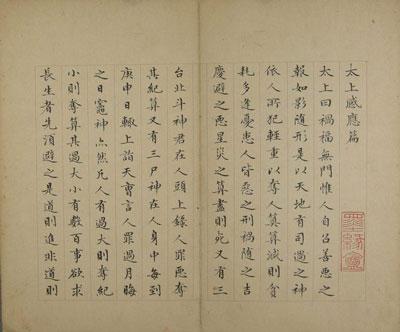 太上感應篇
太上曰禍福無門惟人自召善惡之
報如影隨形是以天地有司過之神
依人所犯輕重以奪人算算減則貧
耗多逢憂患人皆惡之刑禍隨之吉
慶避之惡星災之算盡則死又有三
台北斗神君在人頭上錄人罪惡奪
其紀算又有三尸神在人身中每到
庚申日輒上詣天曹言人罪過月晦
之日竈神亦然凡人有過大則奪紀
小則奪算其過大小有數百事欲求
長生者先須避之是道則進非道則